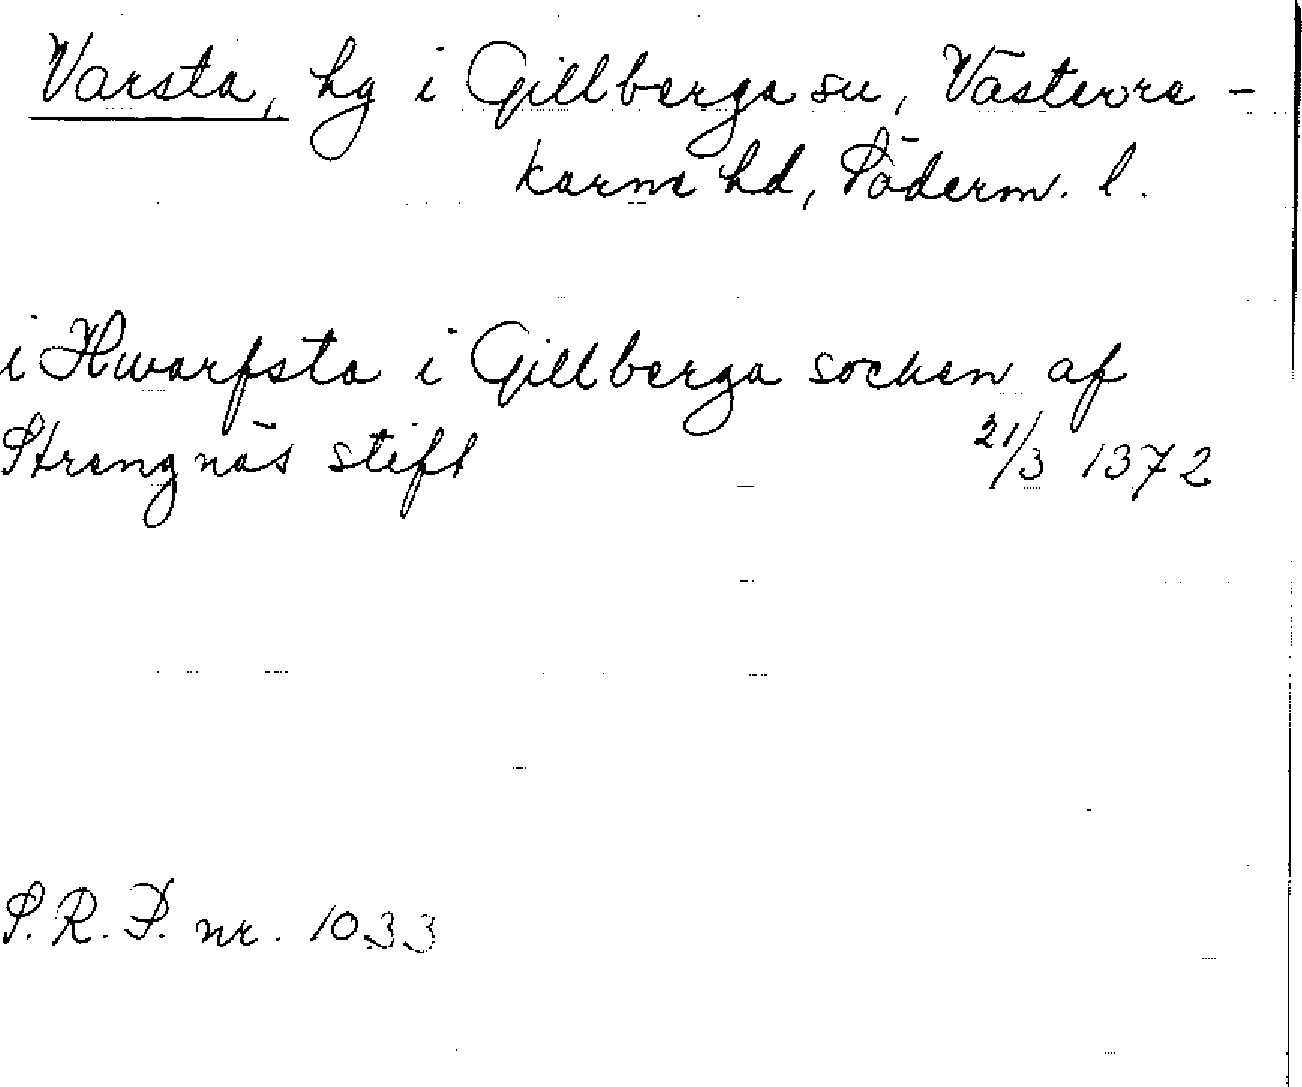 Varsta, hg i Gillberga sn, Västerre-
karne hd, Söderm. l.
i Hwarfsta i Gillberga socken af
Strengnäs stift 21/3 1372
S.R.P. nr. 1033